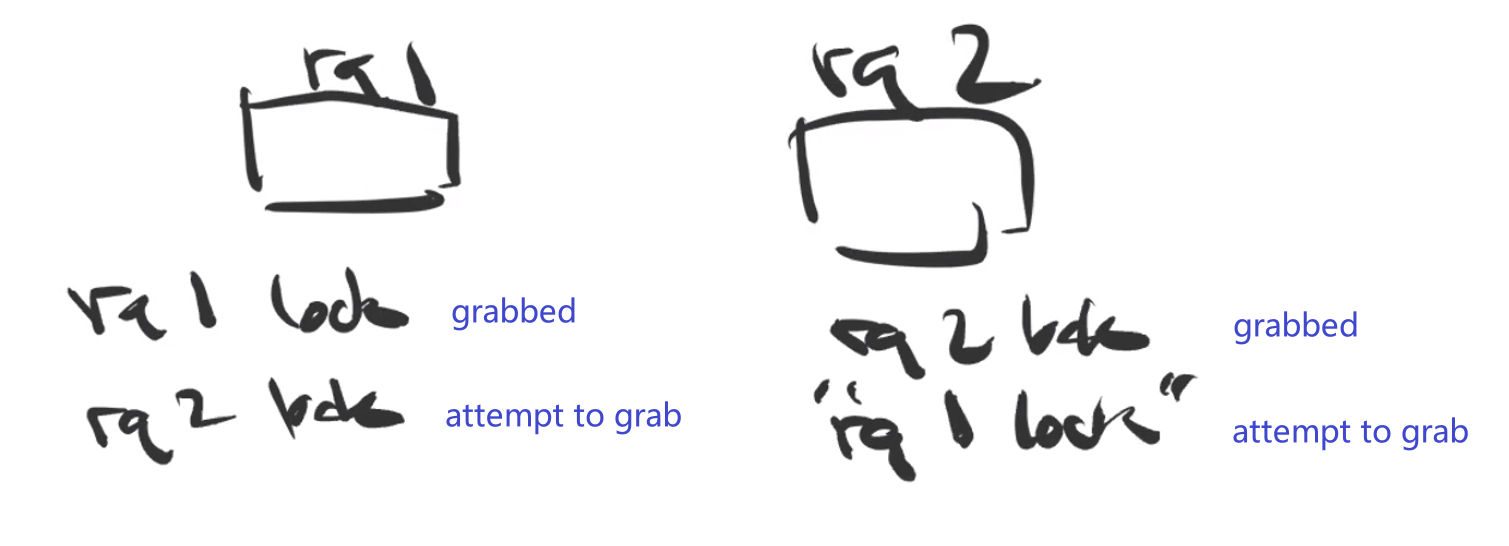 rq 1
rq 1 lock grabbed
rq 2 lock attempt to grab
rq 2
rq 2 lock grabbed
"rq 1 lock" attempt to grab